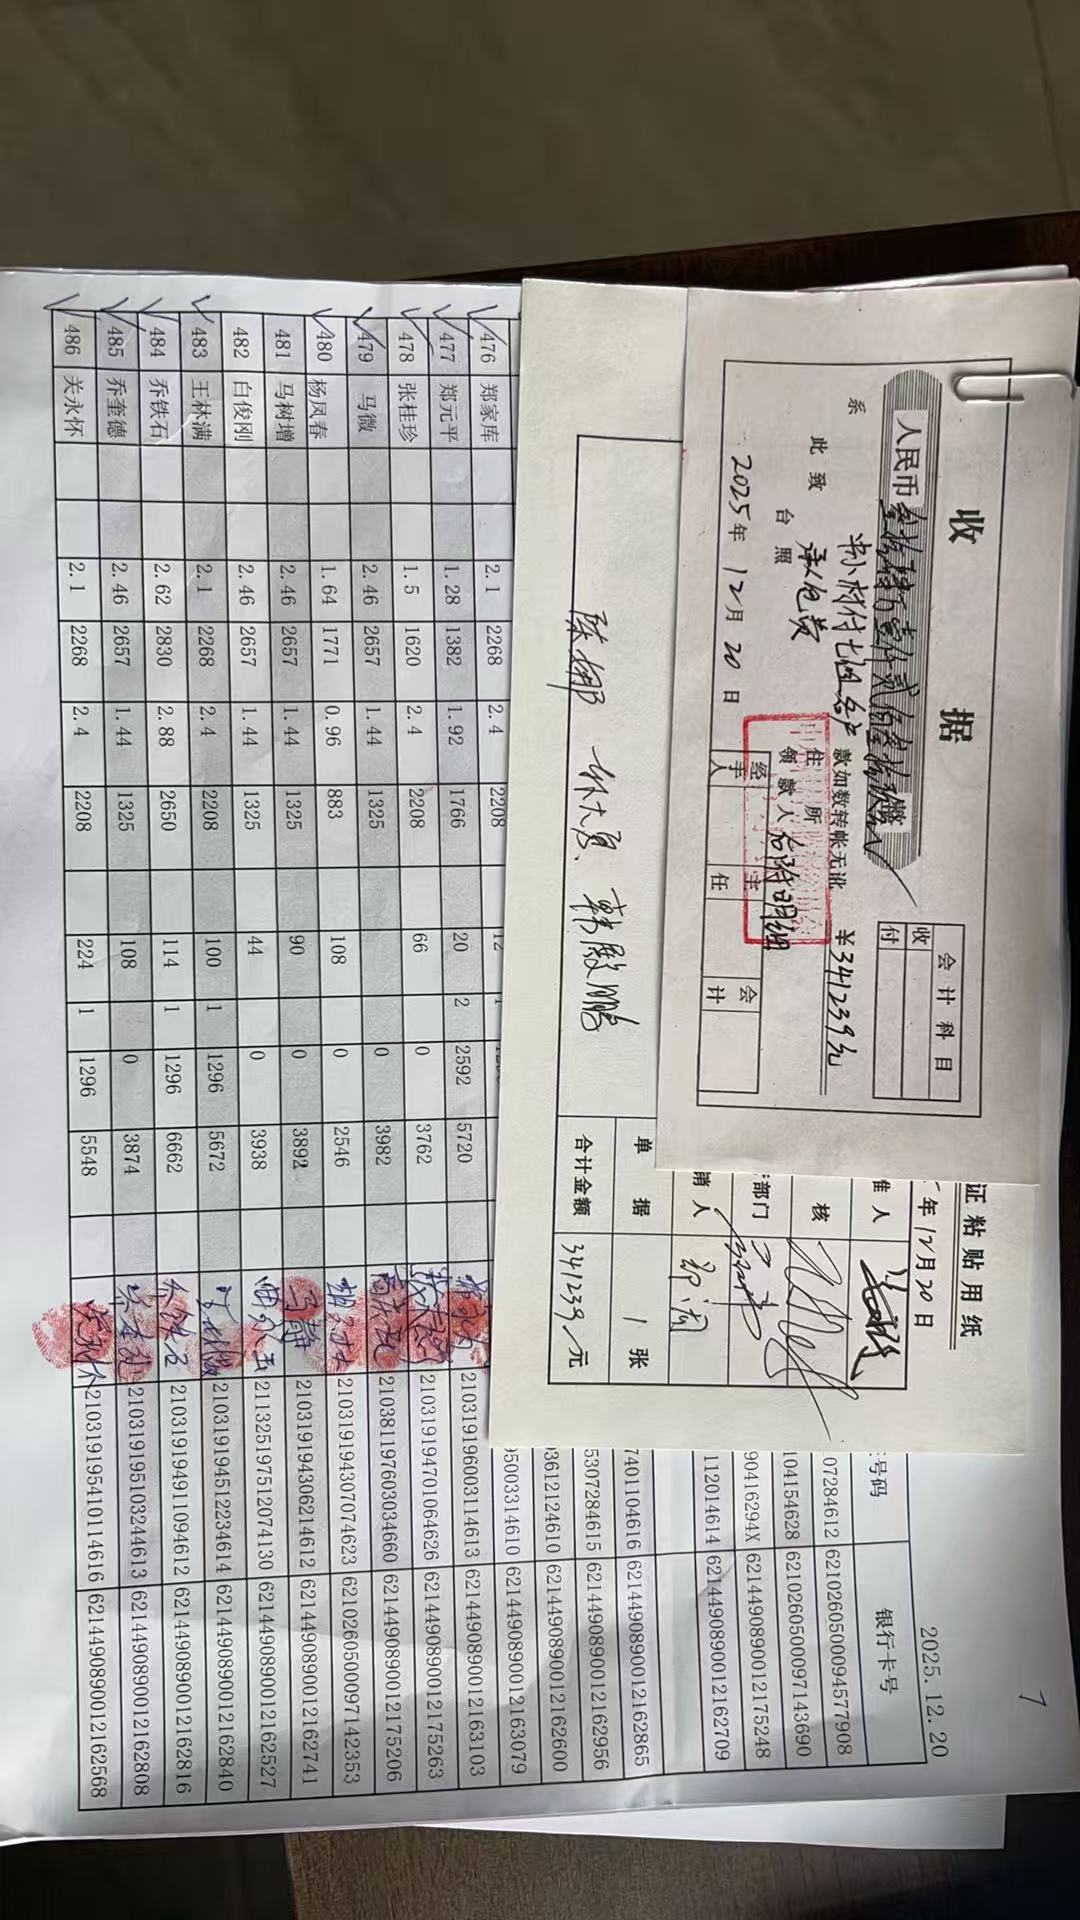 收 据
会计科目
收
付
人民币
¥341239元
款如数转帐无讹
系
承包费
此致
台照
领款人 后附明细
住所
2025年12月20日
经手人
主任
会计
证粘贴用纸
年12月20日
准人
核
部门
销人
单据 1张
合计金额 341239元
2025.12.20
7
号码 银行卡号
07284612 6210260500094577908
104154628 6210260500097143690
90416294X 6214490890012175248
112014614 6214490890012162709
7401104616 6214490890012162865
5307284615 6214490890012162956
03612124610 6214490890012162600
95003314610 6214490890012163079
476 郑家库 2.1 2268 2.4 2208 12
477 郑元平 1.28 1382 1.92 1766 20 2 2592 5720 210319196003114613 6214490890012163103
478 张桂珍 1.5 1620 2.4 2208 66 0 3762 210319194701064626 6214490890012175263
479 马微 2.46 2657 1.44 1325 0 3982 210381197603034660 6214490890012175206
480 杨凤春 1.64 1771 0.96 883 108 0 2546 210319194307074623 6210260500097142353
481 马树增 2.46 2657 1.44 1325 90 0 3892 210319194306214612 6214490890012162741
482 白俊刚 2.46 2657 1.44 1325 44 0 3938 211325197512074130 6214490890012162527
483 王林满 2.1 2268 2.4 2208 100 1 1296 5672 210319194512234614 6214490890012162840
484 乔铁石 2.62 2830 2.88 2650 114 1 1296 6662 210319194911094612 6214490890012162816
485 乔奎德 2.46 2657 1.44 1325 108 0 3874 210319195103244613 6214490890012162808
486 关永怀 2.1 2268 2.4 2208 224 1 1296 5548 210319195410114616 6214490890012162568